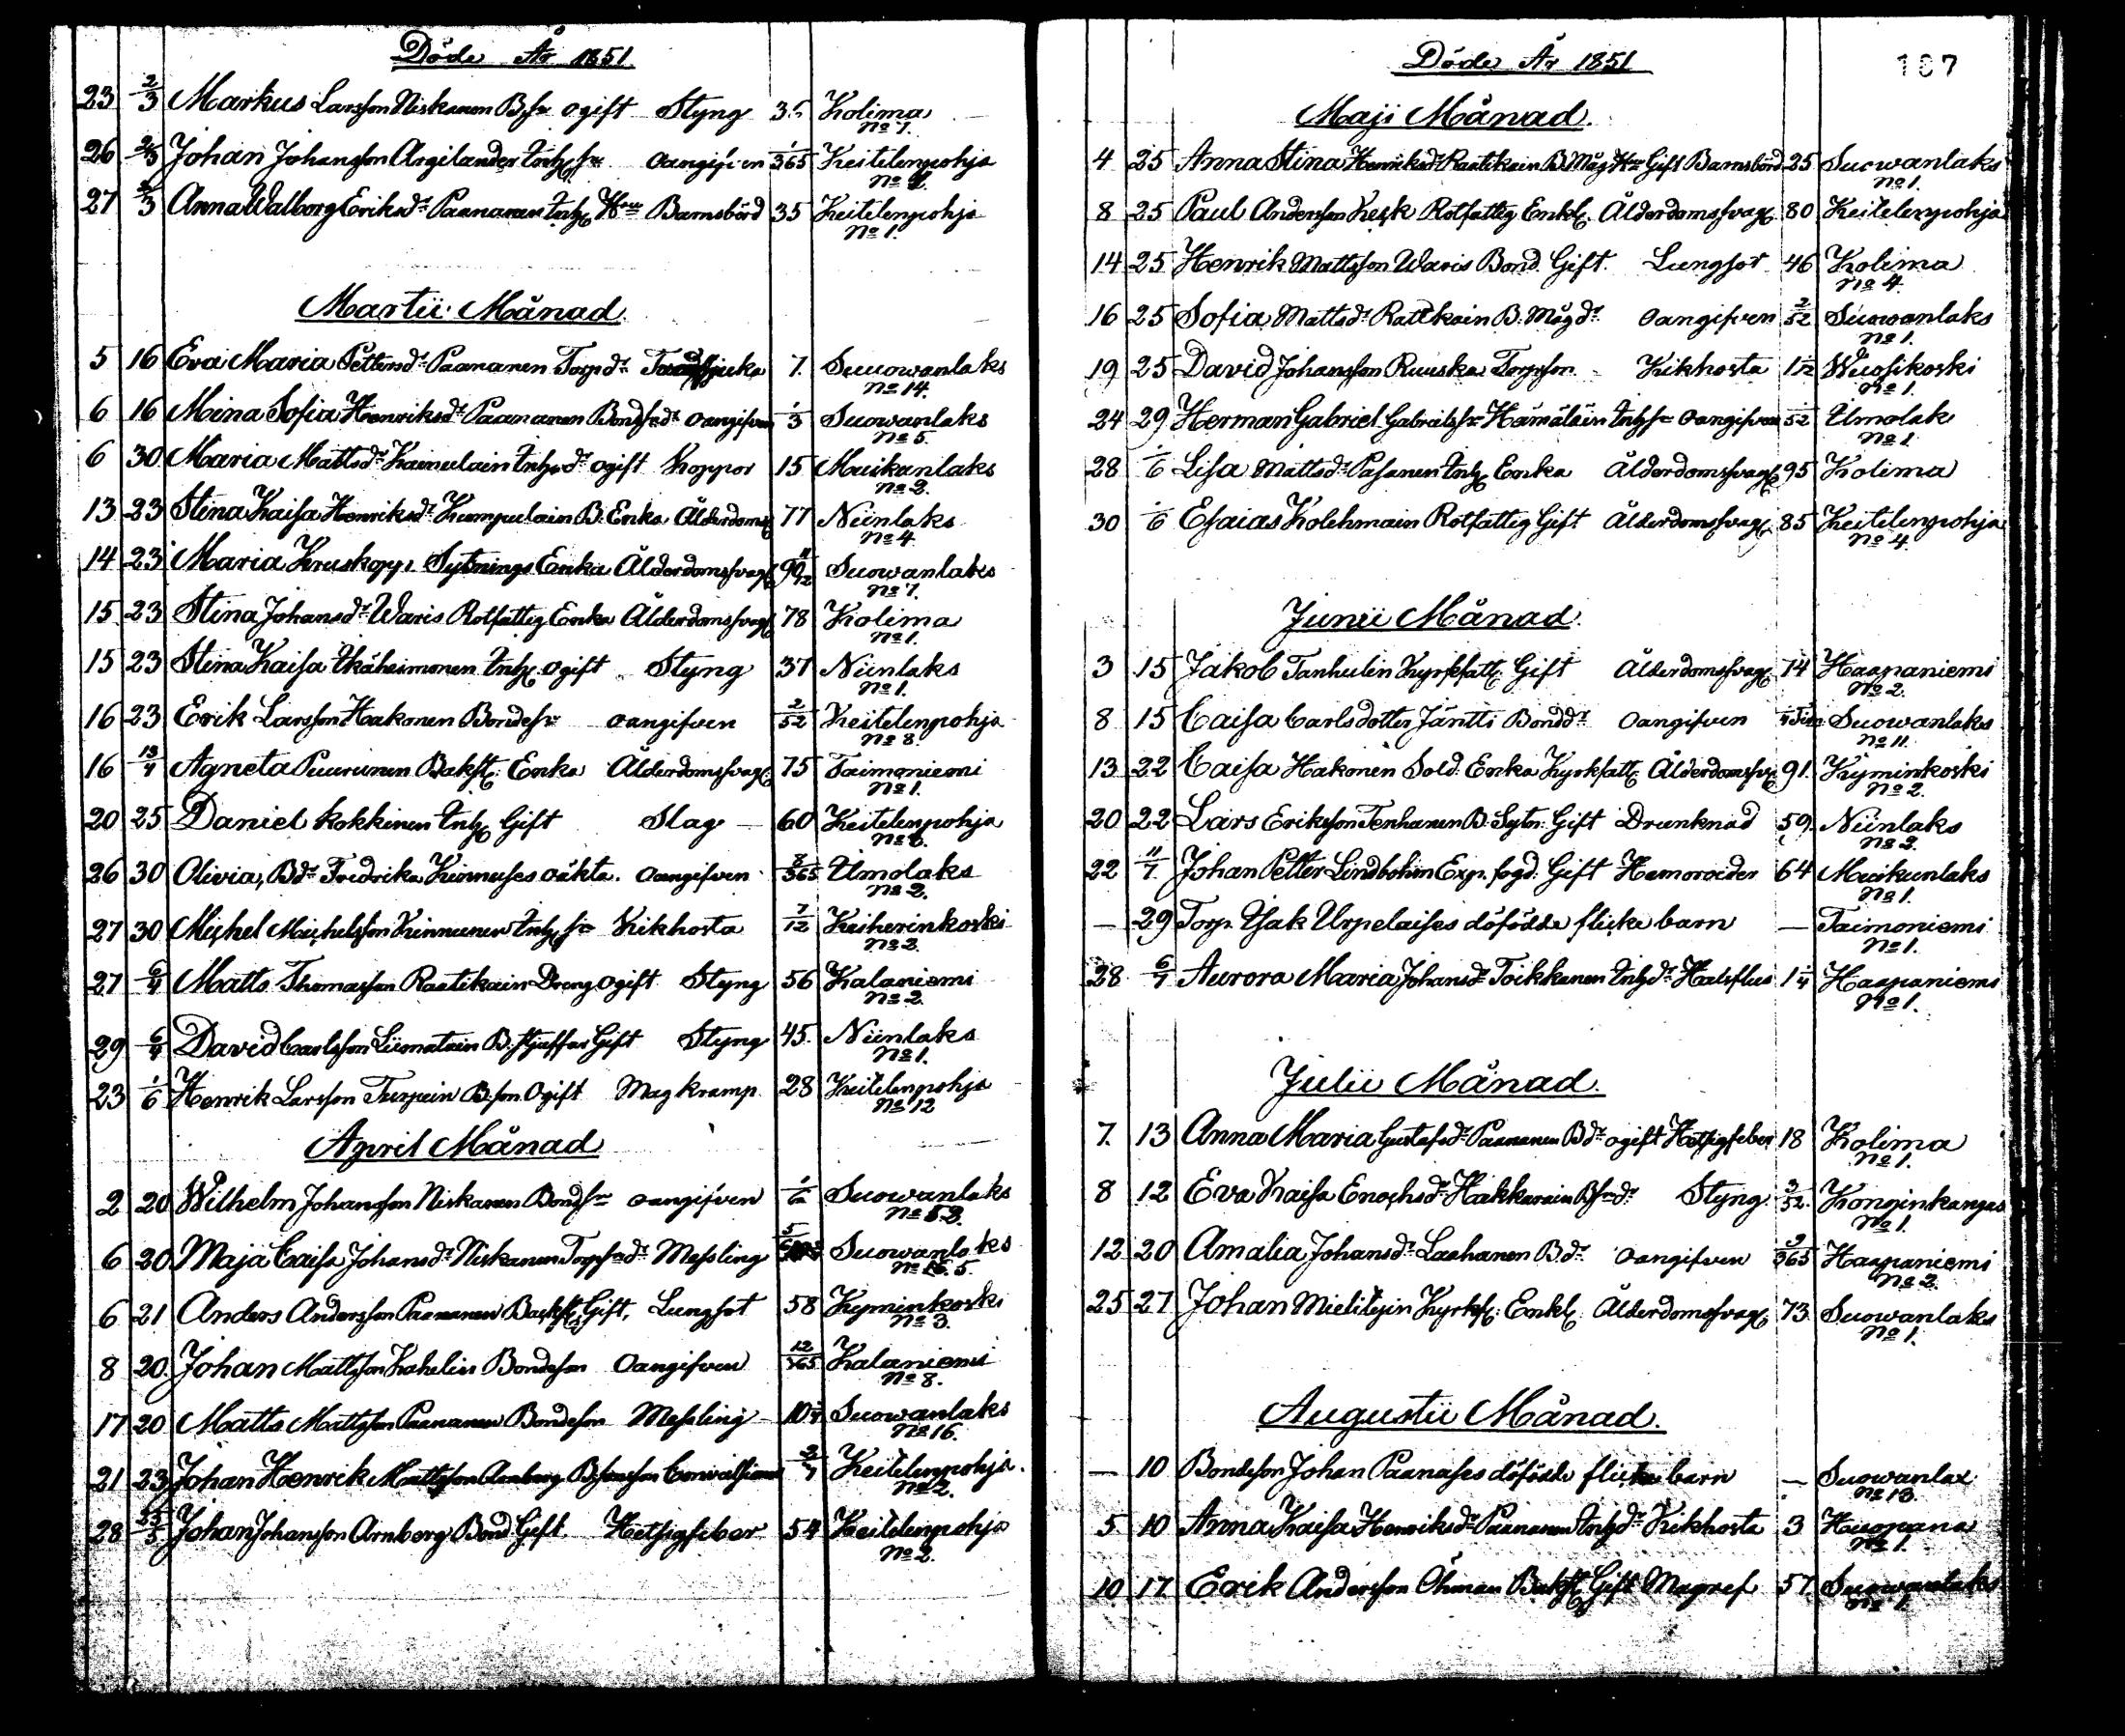 Döde År 1851
23 2/3 Markus Larsson Niskanen B.sn ogift Styng 35 Kolima
No 7.
26 2/3 Johan Johansson Argilander Inh. sn oangifven 1/365 Keitelenpohja
No 2.
27 2/3 Anna Walborg Eriksdr Paananen Inh. Hru Barnsbörd 35 Keitelenpohja
No 1.
Martii Månad
5 16 Eva Maria Pettersdr Paananen Torp.dr 7. Suuowanlaks
No 14.
6 16 Mina Sofia Henriksdr Paananen Bondsdr oangifven 1/3 Suowanlaks
No 5.
6 30 Maria Mattsdr Kainulain Inh. dr ogift Koppor 15 Muikunlaks
No 2.
13 23 Stina Kaisa Henriksdr Kumpulain B. Enka Ålderdoms 77 Niinlaks
No 4
14 23 Maria Kruskopp Sytnings Enka Ålderdomssvagh 90 11/12 Suowanlaks
No 7.
15 23 Stina Johansdr Waris Rotfattig Enka Ålderdomssvagh 78 Kolima
No 1.
15 23 Stina Kaisa Ikäheimonen Inh. ogift Styng 37 Niinlaks
No 1.
16 23 Erik Larsson Hakonen Bondesn oangifven 2/52 Keitelenpohja
No 8.
16 13/4 Agneta Puurunen Bakst. Enka Ålderdomssvagh 75 Taimoniemi
No 1.
20 25 Daniel Kokkinen Inh. Gift Slag 60 Keitelenpohja
No 2.
26 30 Olivia, Bdr Fredrika Kinnuses oäkta. oangifven 8/365 Ilmolaks
No 2.
27 30 Michel Michelsson Kinnunen Inh. sn Kikhosta 7/12 Keiherinkoski
No 2
27 6/4 Matts Thomasson Raatikain Dreng ogift Styng 56 Kalaniemi
No 2.
29 6/4 David Carlsson Liimatain B. Gift Styng 45. Niinlaks
No 1.
23 1/6 Henrik Larsson Turpein B.son Ogift Magkramp 28 Keitelenpohja
No 12
April Månad
2 20 Wilhelm Johansson Niskanen Bondsn oangifven 1/6 Suowanlaks
No 5
6 20. Maja Caisa Johansdr Niskanen Torp. dr Messling Suowanlaks
No 5.
6 21 Anders Andersson Paananen Backst. Gift, Lungsot 58 Kyminkoski
No 3.
8 20. Johan Mattsson Kahelin Bondeson Oangifven 12/365 Kalaniemi
No 8.
17 20 Matts Mattsson Paananen Bondeson Messling 10 Suowanlaks
No 16.
21 23 Johan Henrik Mattsson Arnberg 2/7 Keitelenpohja.
No 2.
28 25/5 Johan Johansson Arnberg Bond Gift. Hetsigfeber 54 Keitelenpohja
No 2.
Döde År 1851
107
Maji Månad.
4 25 Anna Stina Henriksdr Raatikain B. Måg Hru Gift Barnsbörd 25 Suowanlaks
No 1.
8 25 Paul Andersson Kesk Rotfattig Enkl. Ålderdomssvagh 80 Keitelenpohja
14 25 Henrik Mattsson Waris Bond. Gift. Lungsot 46 Kolima
No 4.
16 25 Sofia Mattsdr Raatikain B. Mågdr oangifven 2/52 Suowanlaks
No 1.
19 25 David Johansson Ruuska Torpson Kikhosta 1 1/12 Wuosikoski
No 1.
24 29 Herman Gabriel Gabrielssn Hämäläin Inh. sn oangifven 1/52 Ilmolak
No 1
28 1/6 Lisa Mattsdr Pasanen Inh. Enka Ålderdomssvagh 95 Kolima
30 1/6 Esaias Kolehmain Rotfattig Gift Ålderdomssvagh 85 Keitelenpohja
No 4.
Junii Månad.
3 15 Jakob Tanhulin Kyrkfatt. Gift Ålderdomssvagh 74 Haapaniemi
No 2.
8 15 Caisa Carlsdotter Jäntti Bonddr oangifven Suowanlaks
No 11.
13 22 Caisa Hakonen Sold. Enka Kyrkfatt. Ålderdomssv 91. Kyminkoski
No 2.
20 22 Lars Eriksson Tenhunen B. Sytn. Gift Drunknad 59. Niinlaks
No 2.
22 11/7 Johan Petter Lindbohm Exp. fogd. Gift Hemoroider 64 Muikunlaks
No 1.
— 29 Torp. Isak Urpelaises döfödda flicke barn — Taimoniemi
No 1.
28 6/7 Aurora Maria Johansdr Toikkanen Inh. dr Halsflus 1 1/4 Haapaniemi
No 1.
Julii Månad.
7. 13 Anna Maria Gustafsdr Paananen Bdr ogift Hetsigfeber 18 Kolima
No 1.
8 12 Eva Kaisa Enochsdr Hakkarain B.sn dr Styng 3/52 Konginkangas
No 1.
12 20 Amalia Johansdr Laahanen B.dr oangifven 9/365 Haapaniemi
No 2.
25 27 Johan Mielityin Kyrkf. Enkl. Ålderdomssvagh 73 Suowanlaks
No 1.
Augustii Månad.
— 10 Bondeson Johan Paanases döfödde flicke barn — Suowanlax
No 13.
5 10 Anna Kaisa Henriksdr Paananen Inh. dr Kikhosta 3 Huopana
No 1.
10 17 Erik Andersson Öhman Bakst. Gift Magref 57. Suowanlaks
No 1.